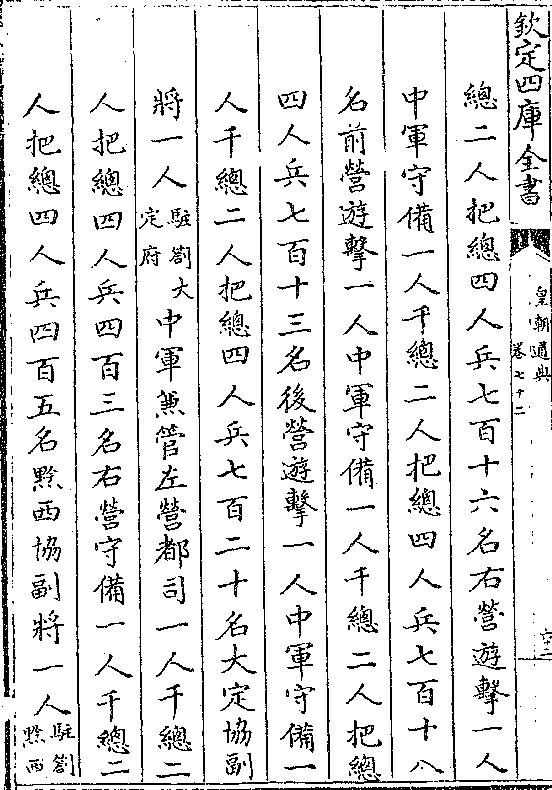 欽定四庫全書
皇朝通典
卷七十二
總二人把總四人兵七百十六名右營遊擊一人
中軍守備一人千總二人把總四人兵七百十八
名前營遊擊一人中軍守備一人千總二人把總
四人兵七百十三名後營遊擊一人中軍守備一
人千總二人把總四人兵七百二十名大定協副
將一人駐劄大定府中軍兼管左營都司一人千總二
人把總四人兵四百三名右營守備一人千總二
人把總四人兵四百五名黔西協副將一人駐劄黔西